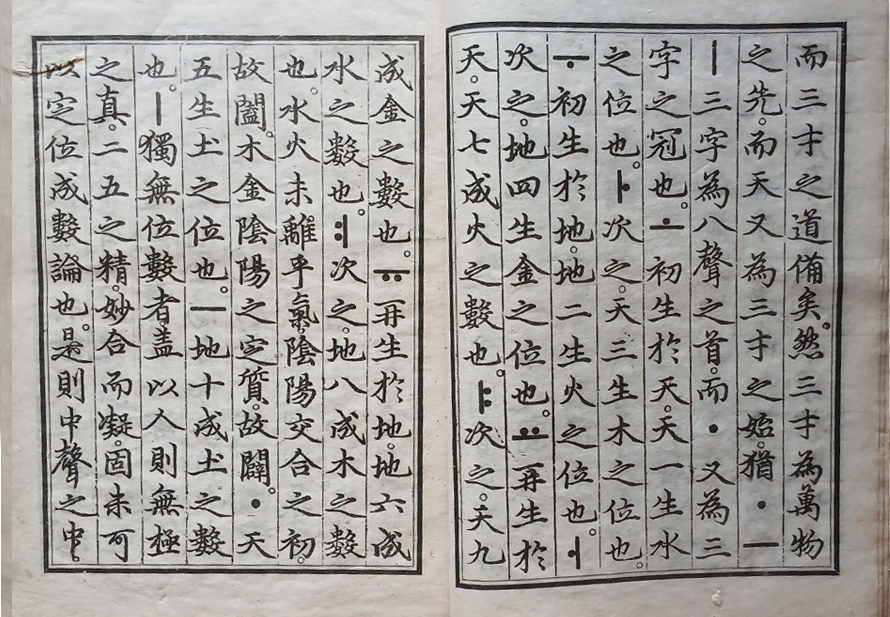 而三才之道備矣。然三才為萬物
之先。而天又為三才之始。猶ㆍㅡ
ㅣ三字為八聲之首。而ㆍ又為三
字之冠也。ㅗ初生於天。天一生水
之位也。ㅏ次之。天三生木之位也。
ㅜ初生於地。地二生火之位也。ㅓ
次之。地四生金之位也。ㅛ再生於
天。天七成火之數也。ㅑ次之。天九
成金之數也。ㅠ再生於地。地六成
水之數也。ㅕ次之。地八成木之數
也。水火未離乎氣。陰陽交合之初。
故闔。木金陰陽之定質。故闢。ㆍ天
五生土之位也。ㅡ地十成土之數
也。ㅣ獨無位數者。盖以人則無極
之真。二五之精。妙合而凝。固未可
以定位成數論也。是則中聲之中。